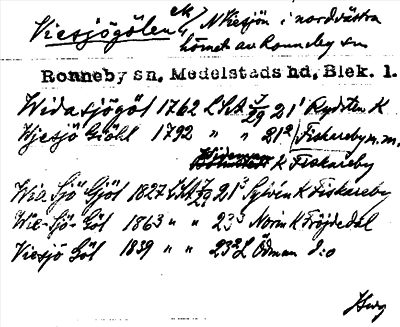 Viesjögölen N Viesjön i nordvästra
hörnet av Ronneby sn
Ronneby sn, Medelstads hd, Blek. l.
Widasjögöl 1762 LSA 21¹ Rydsten K
Wjesjö Giöhl 1792 " " 21² Fiskareby m.m.
K Fiskareby
Wie Sjö Gjöl 1827 LSA 21³ Sylvén K Fiskareby
Wie-Sjö-Göl 1863 " " 23³ Norin K Fröjdedal
Viesjö Göl 1839 " " 23² L Ödman d:o